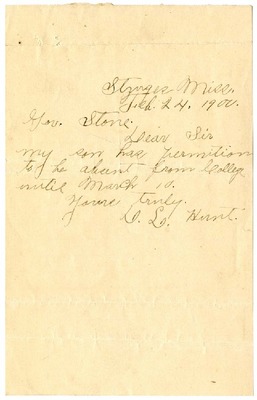 Sturges Miss.
Feb. 24, 1900.
Gov. Stone.
Dear Sir
my son has permition
to be absent from College
until March 10.
Yours truly.
Hunt.